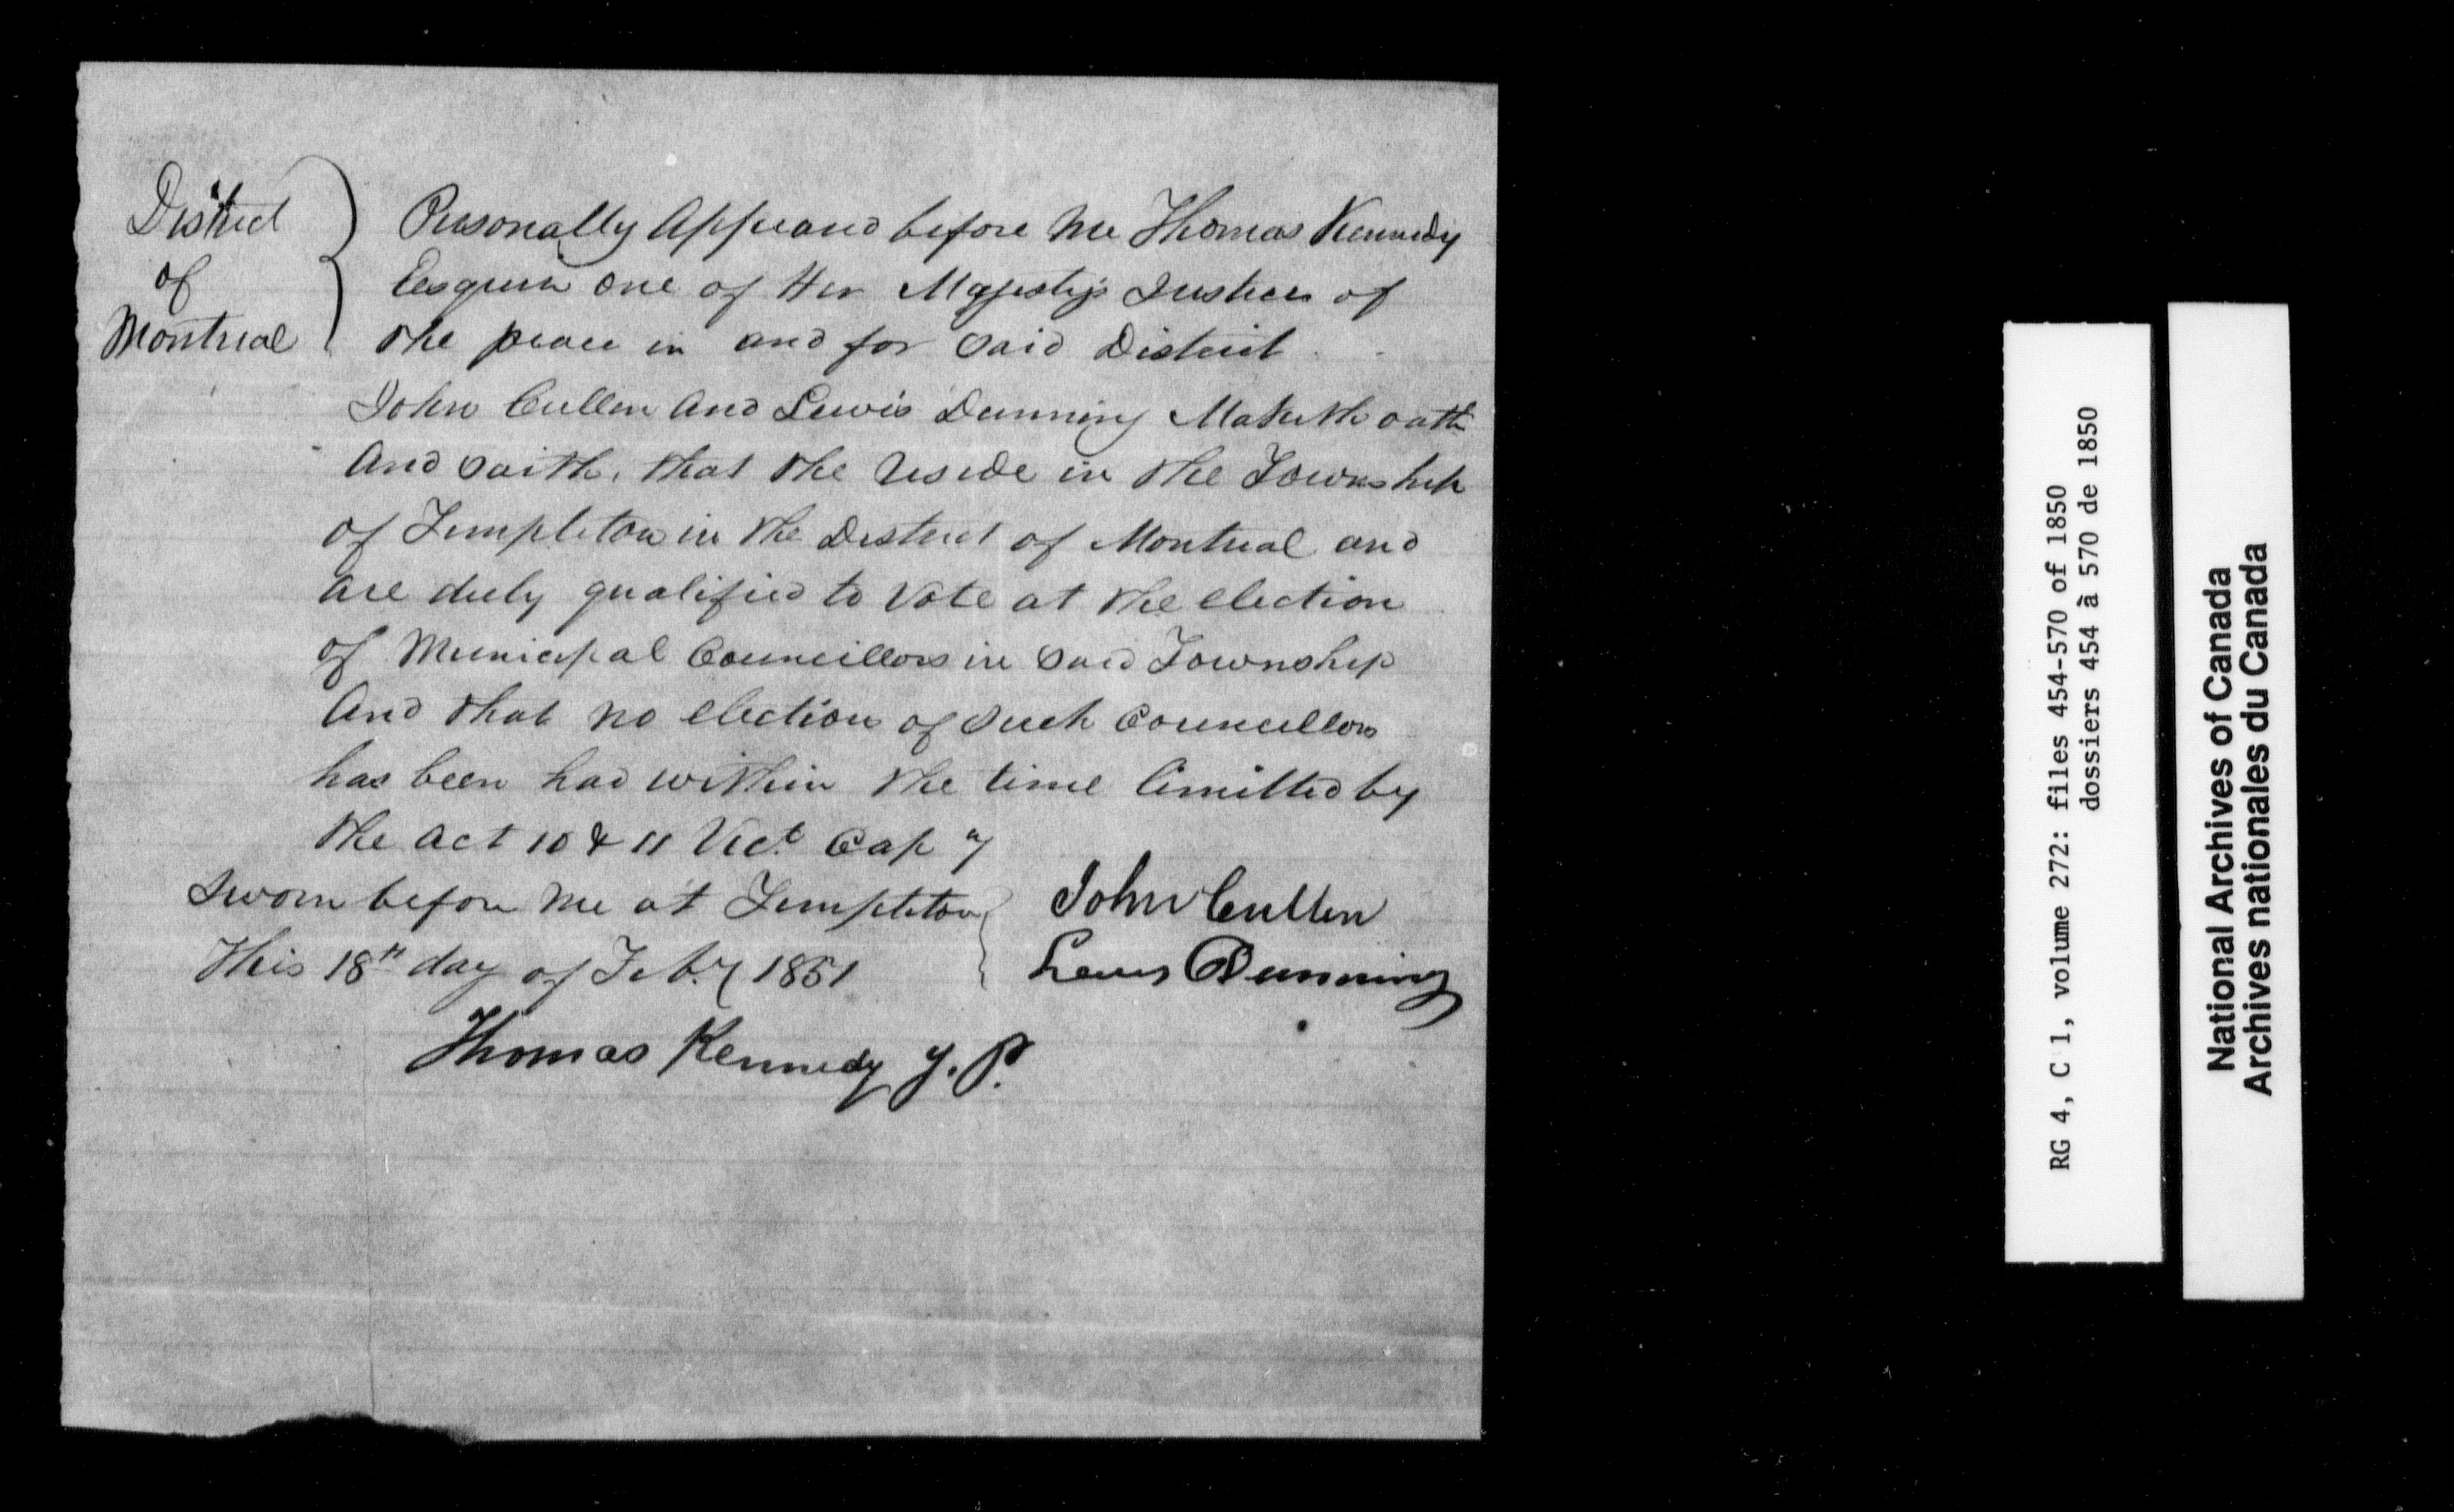 District
of
Montreal
Personally Appeared before me Thomas Kennedy
Esquire one of Her Majesty's Justices of
the peace in and for said District
John Cullen and Lewis Dunning Maketh oath
And saith, that the reside in the Township
of Templeton in the District of Montreal and
are duly qualified to vote at the election
of Municipal Councillors in said Township
And that no election of such Councillors
has been had within the time limitted by
the act 10 & 11 Vict Cap 7
Sworn before me at Templeton
This 18th day of Feby 1851
John Cullen
Lewis Dunning
Thomas Kennedy J.P.
RG 4, C 1, volume 272: files 454-570 of 1850
dossiers 454 à 570 de 1850
National Archives of Canada
Archives nationales du Canada